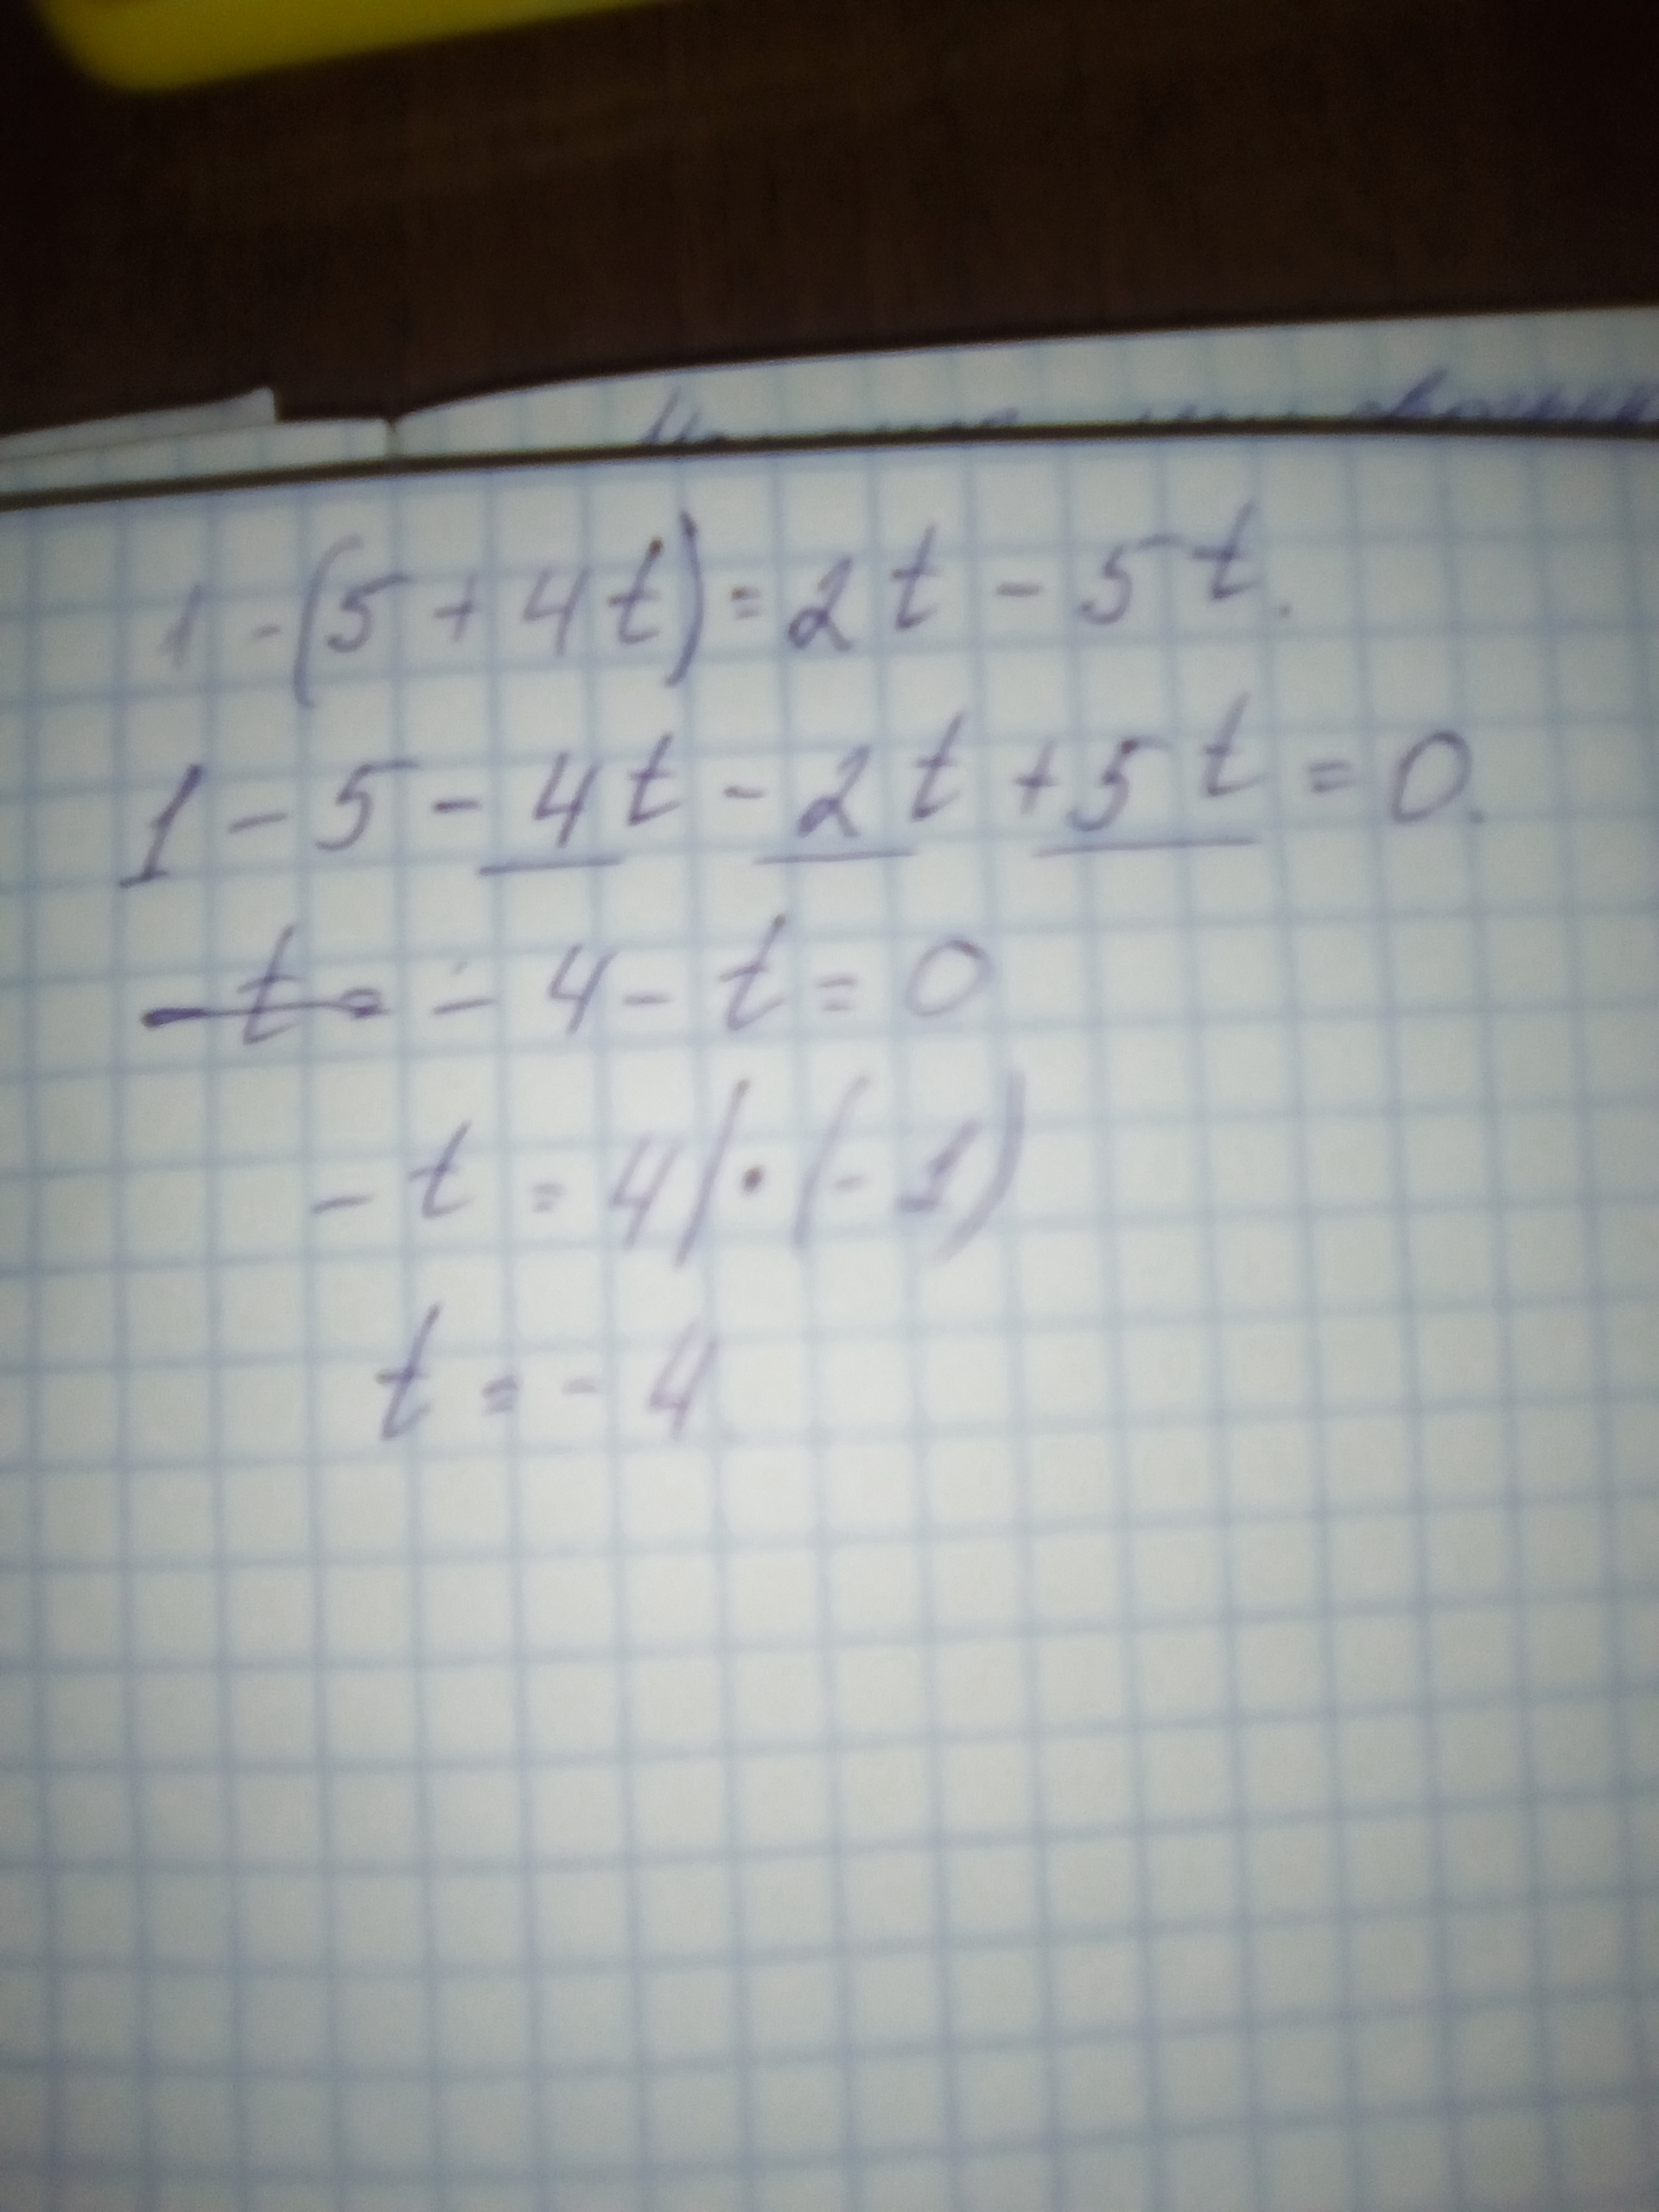 1 - (5 + 4t) = 2t - 5t.
1 - 5 - 4t - 2t + 5t = 0.
- 4 - t = 0
- t = 4 | · (- 1)
t = - 4